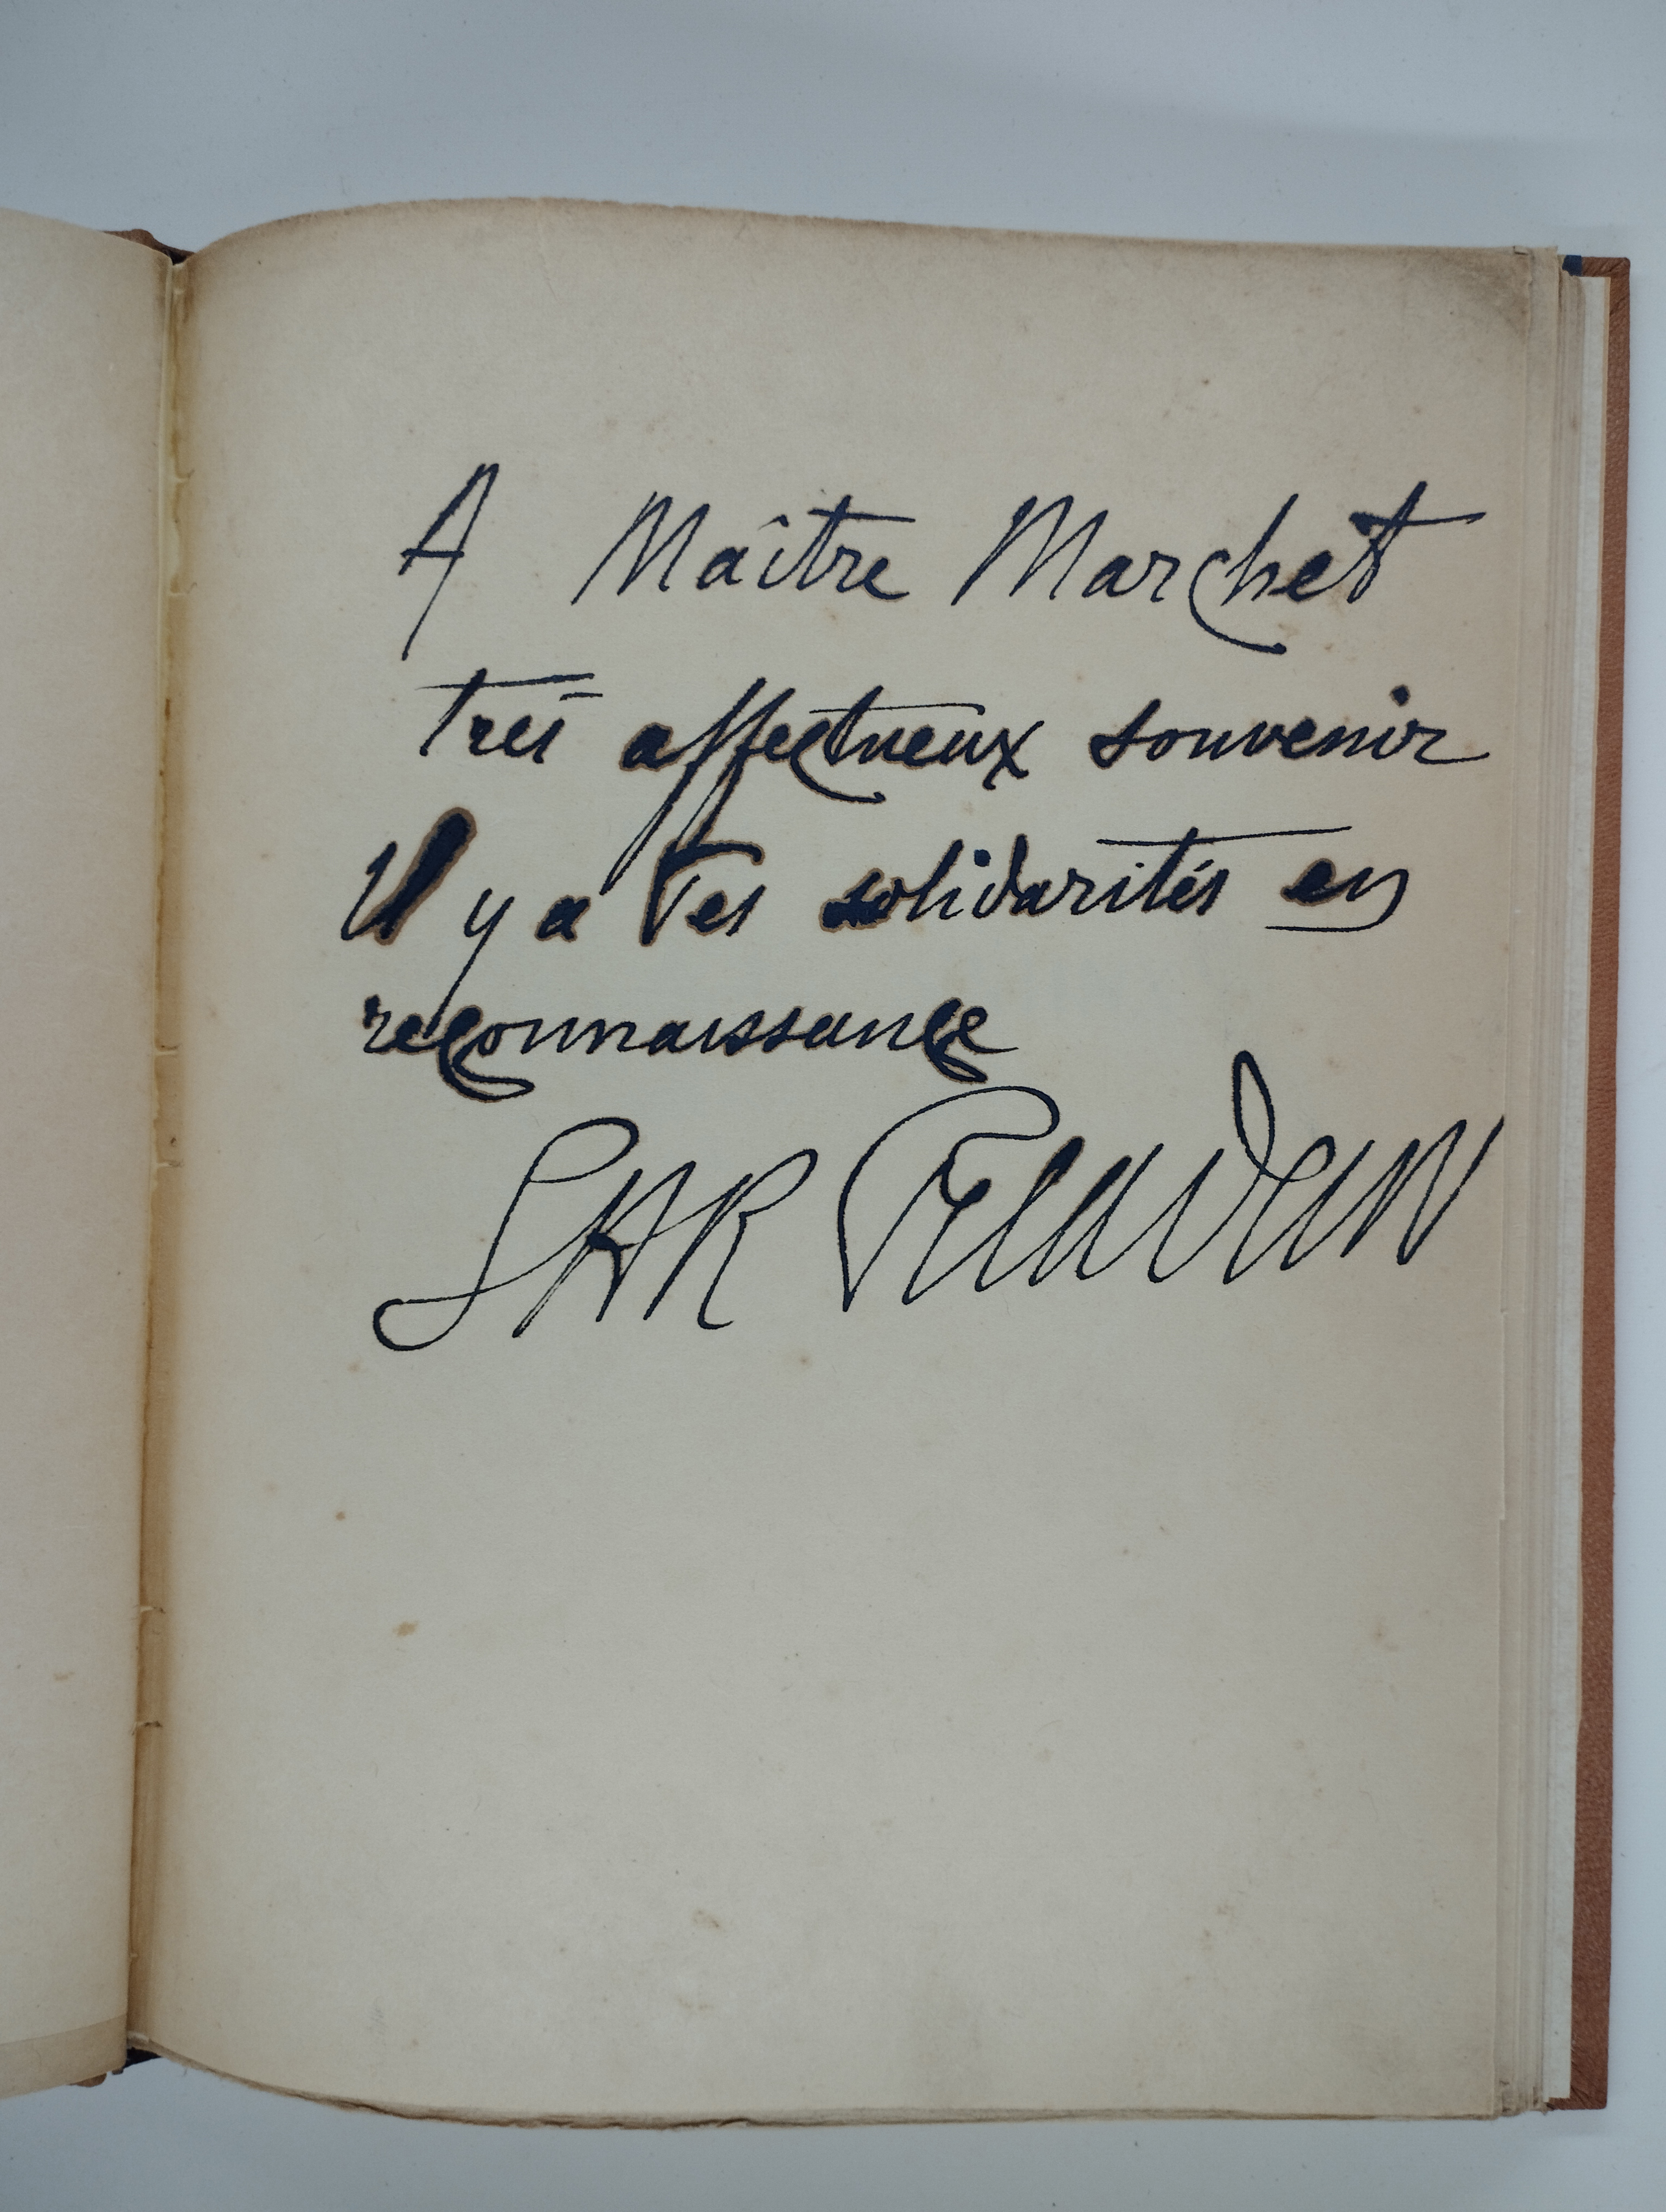 A Maître Marchet
très affectueux souvenir
Il y a des solidarités en
reconnaissance
SAR Peladan